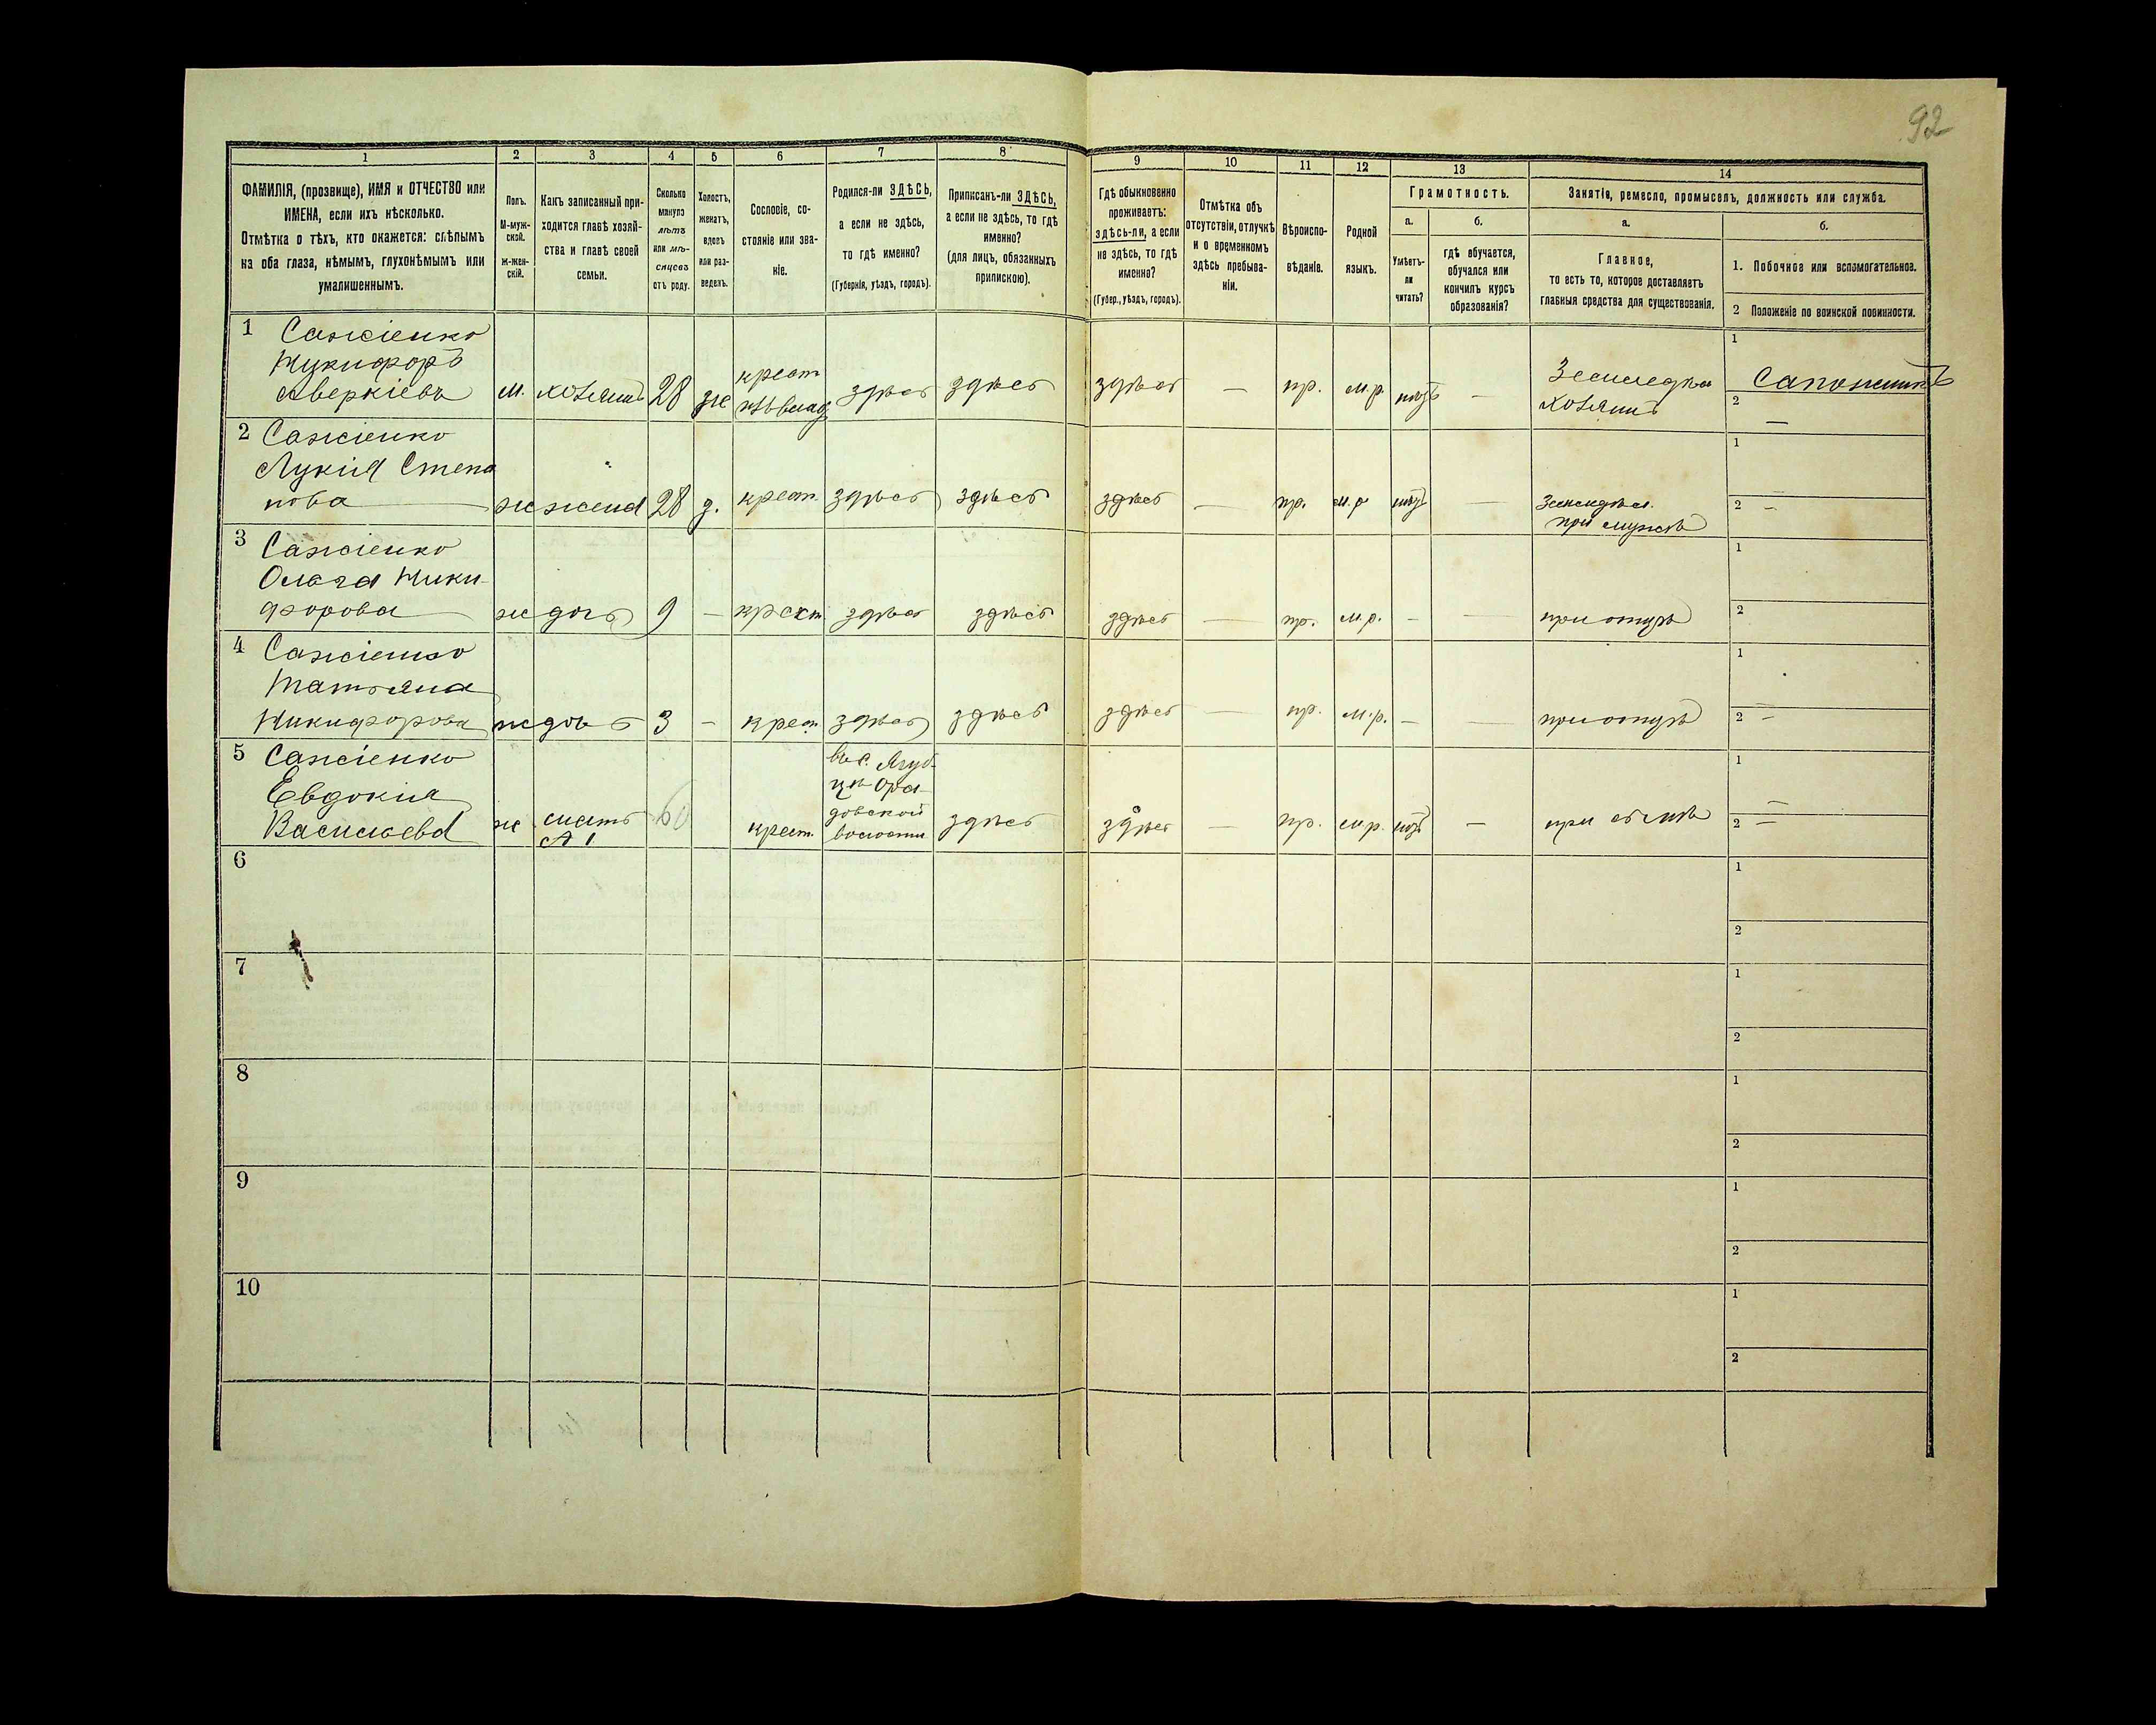 92
1
2
3
4
5
6
7
8
9
10
11
12
13
14
ФАМИЛІЯ, (прозвище), ИМЯ и ОТЧЕСТВО или
ИМЕНА, если ихъ нѣсколько.
Отмѣтка о тѣхъ, кто окажется: слѣпымъ
на оба глаза, нѣмымъ, глухонѣмымъ или
умалишеннымъ.
Полъ.
М-муж-
ской.
ж-жен-
скій.
Какъ записанный при-
ходится главѣ хозяй-
ства и главѣ своей
семьи.
Сколько
минуло
лѣтъ
или мѣ-
сяцевъ
отъ роду.
Холостъ,
женатъ,
вдовъ
или раз-
веденъ.
Сословіе, со-
стояніе или зва-
ніе.
Родился-ли ЗДѢСЬ,
а если не здѣсь,
то гдѣ именно?
(Губернія, уѣздъ, городъ).
Приписанъ-ли ЗДѢСЬ,
а если не здѣсь, то гдѣ
именно?
(для лицъ, обязанныхъ
припискою).
Гдѣ обыкновенно
проживаетъ:
здѣсь-ли, а если
не здѣсь, то гдѣ
именно?
(Губер., уѣздъ, городъ).
Отмѣтка объ
отсутствіи, отлучкѣ
и о временномъ
здѣсь пребыва-
ніи.
Вѣроиспо-
вѣданіе.
Родной
языкъ.
Грамотность.
а.
Умѣетъ-
ли
читать?
б.
гдѣ обучается,
обучался или
кончилъ курсъ
образованія?
Занятія, ремесло, промыселъ, должность или служба.
а.
Главное,
то есть то, которое доставляетъ
главныя средства для существованія.
б.
1. Побочное или вспомогательное.
2 Положеніе по воинской повинности.
1 Сажіенко
Никифоръ
Аверкіевъ
м. хозяинъ 28 же
крест
здѣсь здѣсь здѣсь — пр. м.р. —
Земледел
хозяинъ
1 Сапожникъ
2 —
2 Сажіенко
Лукія Степа
нова
ж жена 28 з. крест. здѣсь здѣсь здѣсь — пр. м.р —
Земледѣл.
при мужѣ
1
2 –
3 Сажіенко
Ольга Ники-
форова
ж дочь 9 – крест здѣсь здѣсь здѣсь — пр. м.р. – —
при отцѣ
1
2
4 Сажіенко
Татьяна
Никифорова
ж дочь 3 – крест здѣсь здѣсь здѣсь — пр. м.р. – —
при отцѣ
1
2 –
5 Сажіенко
Евдокия
Васильева
ж мать
60
крест.
волости
здѣсь здѣсь — пр. м.р. —
при сынѣ
1 –
2 –
6
1
2
7
1
2
8
1
2
9
1
2
10
1
2